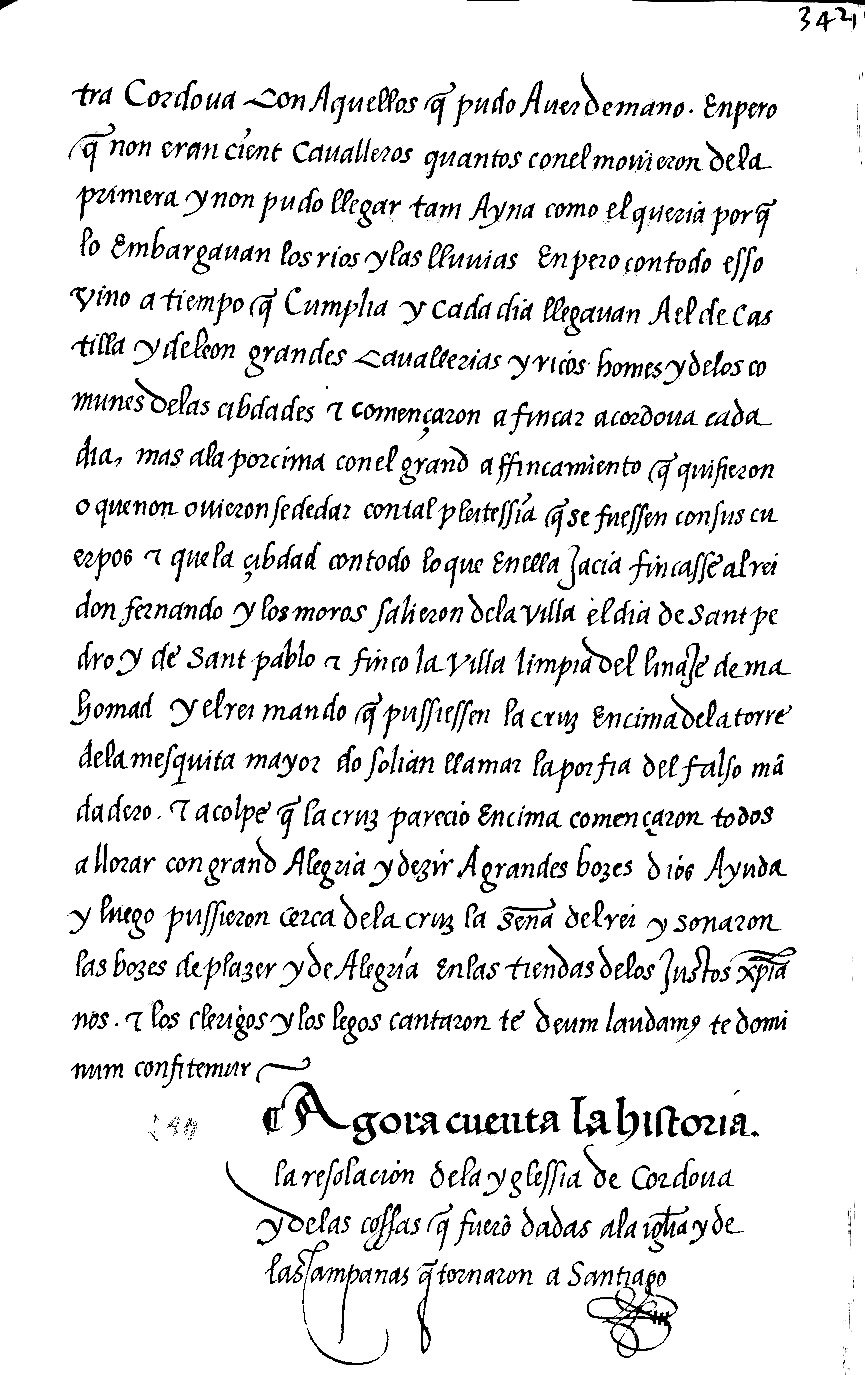 342
tra Cordoua Con Aquellos q̃ pudo Auer de mano. Enpero
q̃ non eran çient Caualleros quantos conel mouieron dela
primera y non pudo llegar tam Ayna como el queria porq̃
lo Embargauan los rios y las lluuias Enpero contodo esso
vino a tiempo q̃ Cumplia y cada dia llegauan Ael de Cas
tilla y deleon grandes Cauallerias y ricos homes y delos co
munes delas cibdades ⁊ començaron a fincar acordoua cada
dia, mas ala porcima conel grand affincamiento q̃ quisieron
o que non ouieron sededar contal pleitessia q̃ se fuessen consus cu
erpos ⁊ que la çibdad contodo lo que Enella Jacia fincasse al rei
don fernando y los moros salieron dela villa el dia de Sant pe
dro y de Sant pablo ⁊ finco la villa limpia del linaje de ma
homad y el rei mando q̃ pussiessen la cruz Encima dela torre
dela mesquita mayor do solian llamar la porfia del falso mã
dadero. ⁊ a colpe q̃ la cruz pareçio Encima començaron todos
a llorar con grand Alegria y dezir A grandes bozes dios Ayuda
y luego pussieron cerca dela cruz la Seña del rei y sonaron
las bozes de plazer y de Alegria Enlas tiendas delos Justos xp̃ia
nos. ⁊ los clerigos y los legos cantaron te deum laudamꝰ te domi
num confitemur
¶ Agora cuenta la historia.
la resolaçion dela yglessia de Cordoua
y delas cossas q̃ fuerõ dadas ala iglia y de
las Campanas q̃ tornaron a Santiago